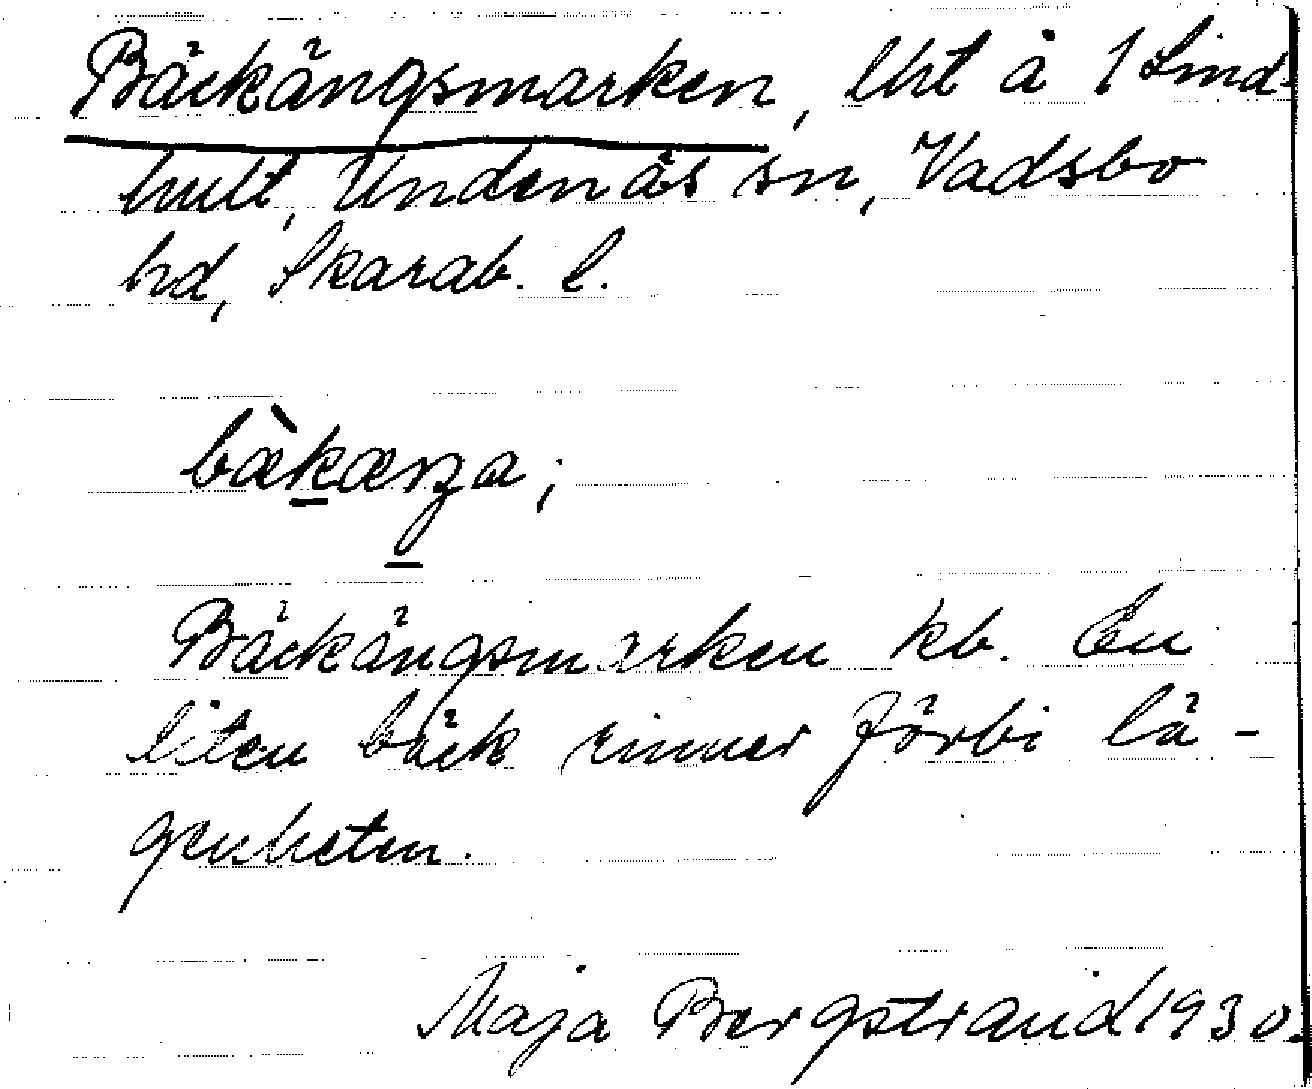 Bäckängsmarken, lht å 1 Lind-
hult, Undenäs sn, Vadsbo
hd, Skarab. l.
bæ̀kæŋa;
Bäckängsmarken kb. En
liten bäck rinner förbi lä-
genheten.
Maja Bergstrand 1930.